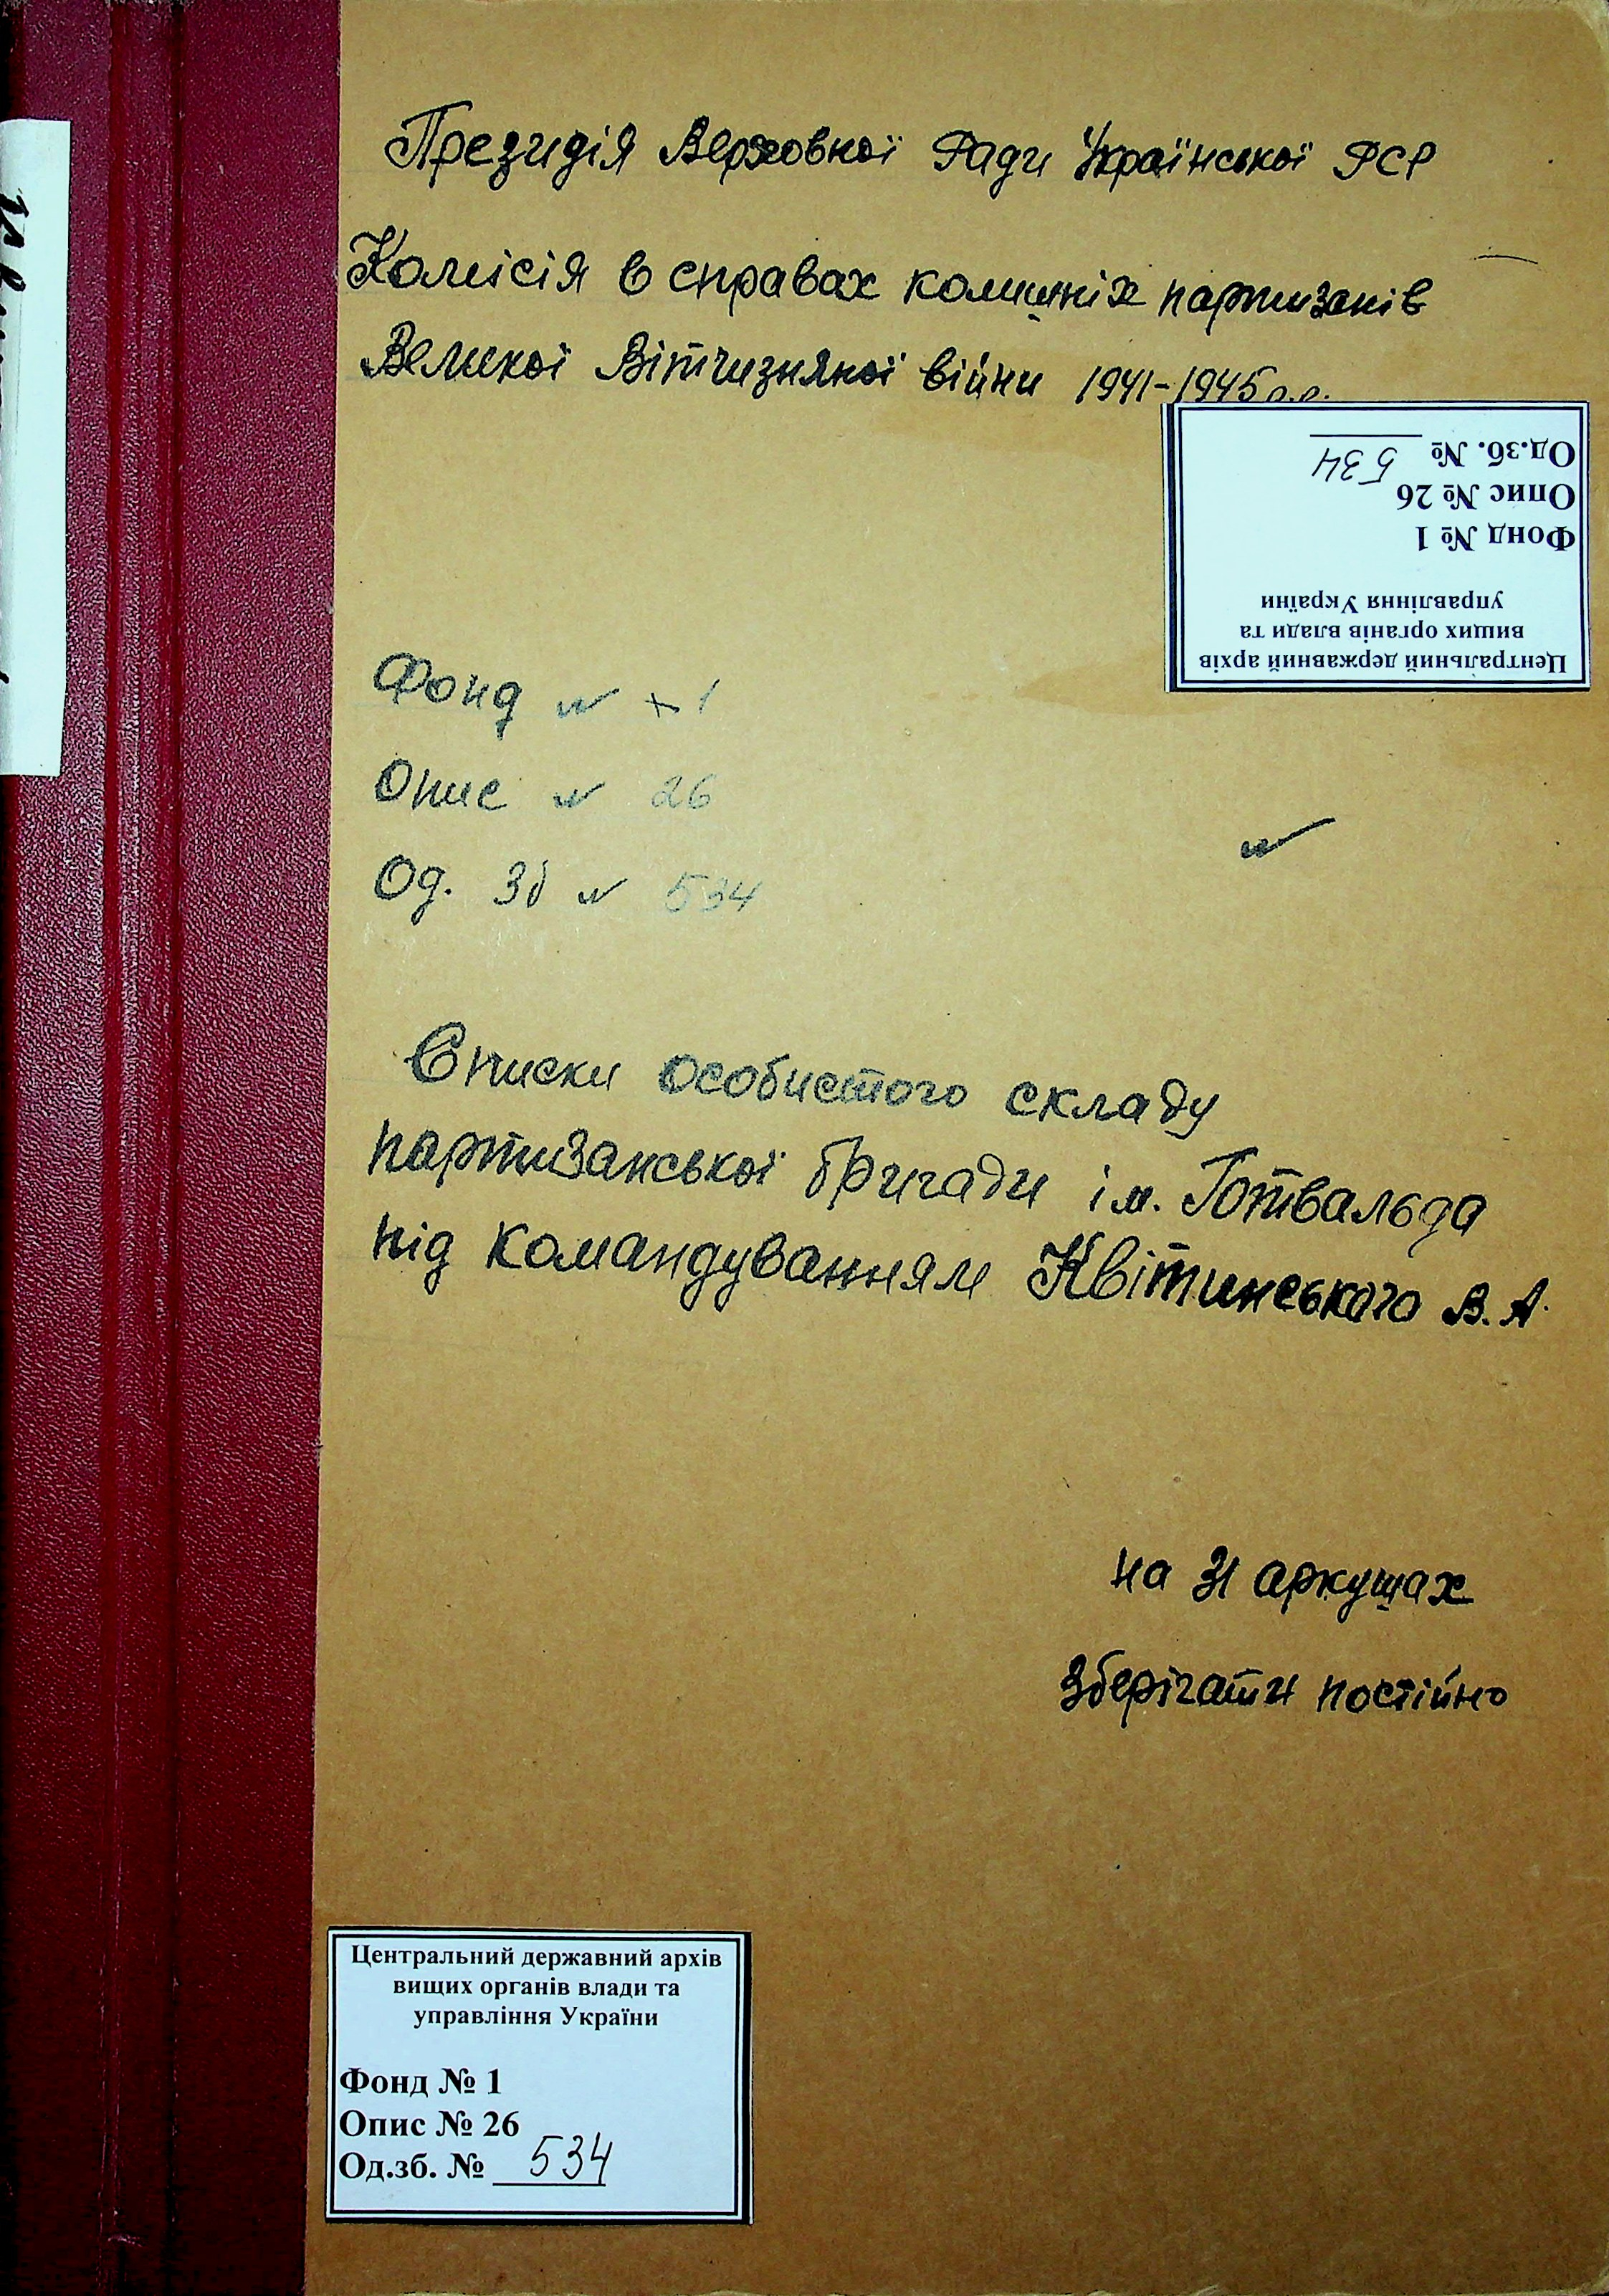 Президія Верховної Ради Української РСР
Комісія в справах колишніх партизанів
Великої Вітчизняної війни 1941-1945 р.р.
Центральний державний архів
вищих органів влади та
управління України
Фонд № 1
Опис № 26
Од.зб. № 534
Фонд № 1
Опис № 26
Од. Зб № 534
Списки особистого складу
партизанської бригади ім. Готвальда
під командуванням Квітинського В. А.
на 31 аркушах
Зберігати постійно
Центральний державний архів
вищих органів влади та
управління України
Фонд № 1
Опис № 26
Од.зб. № 534